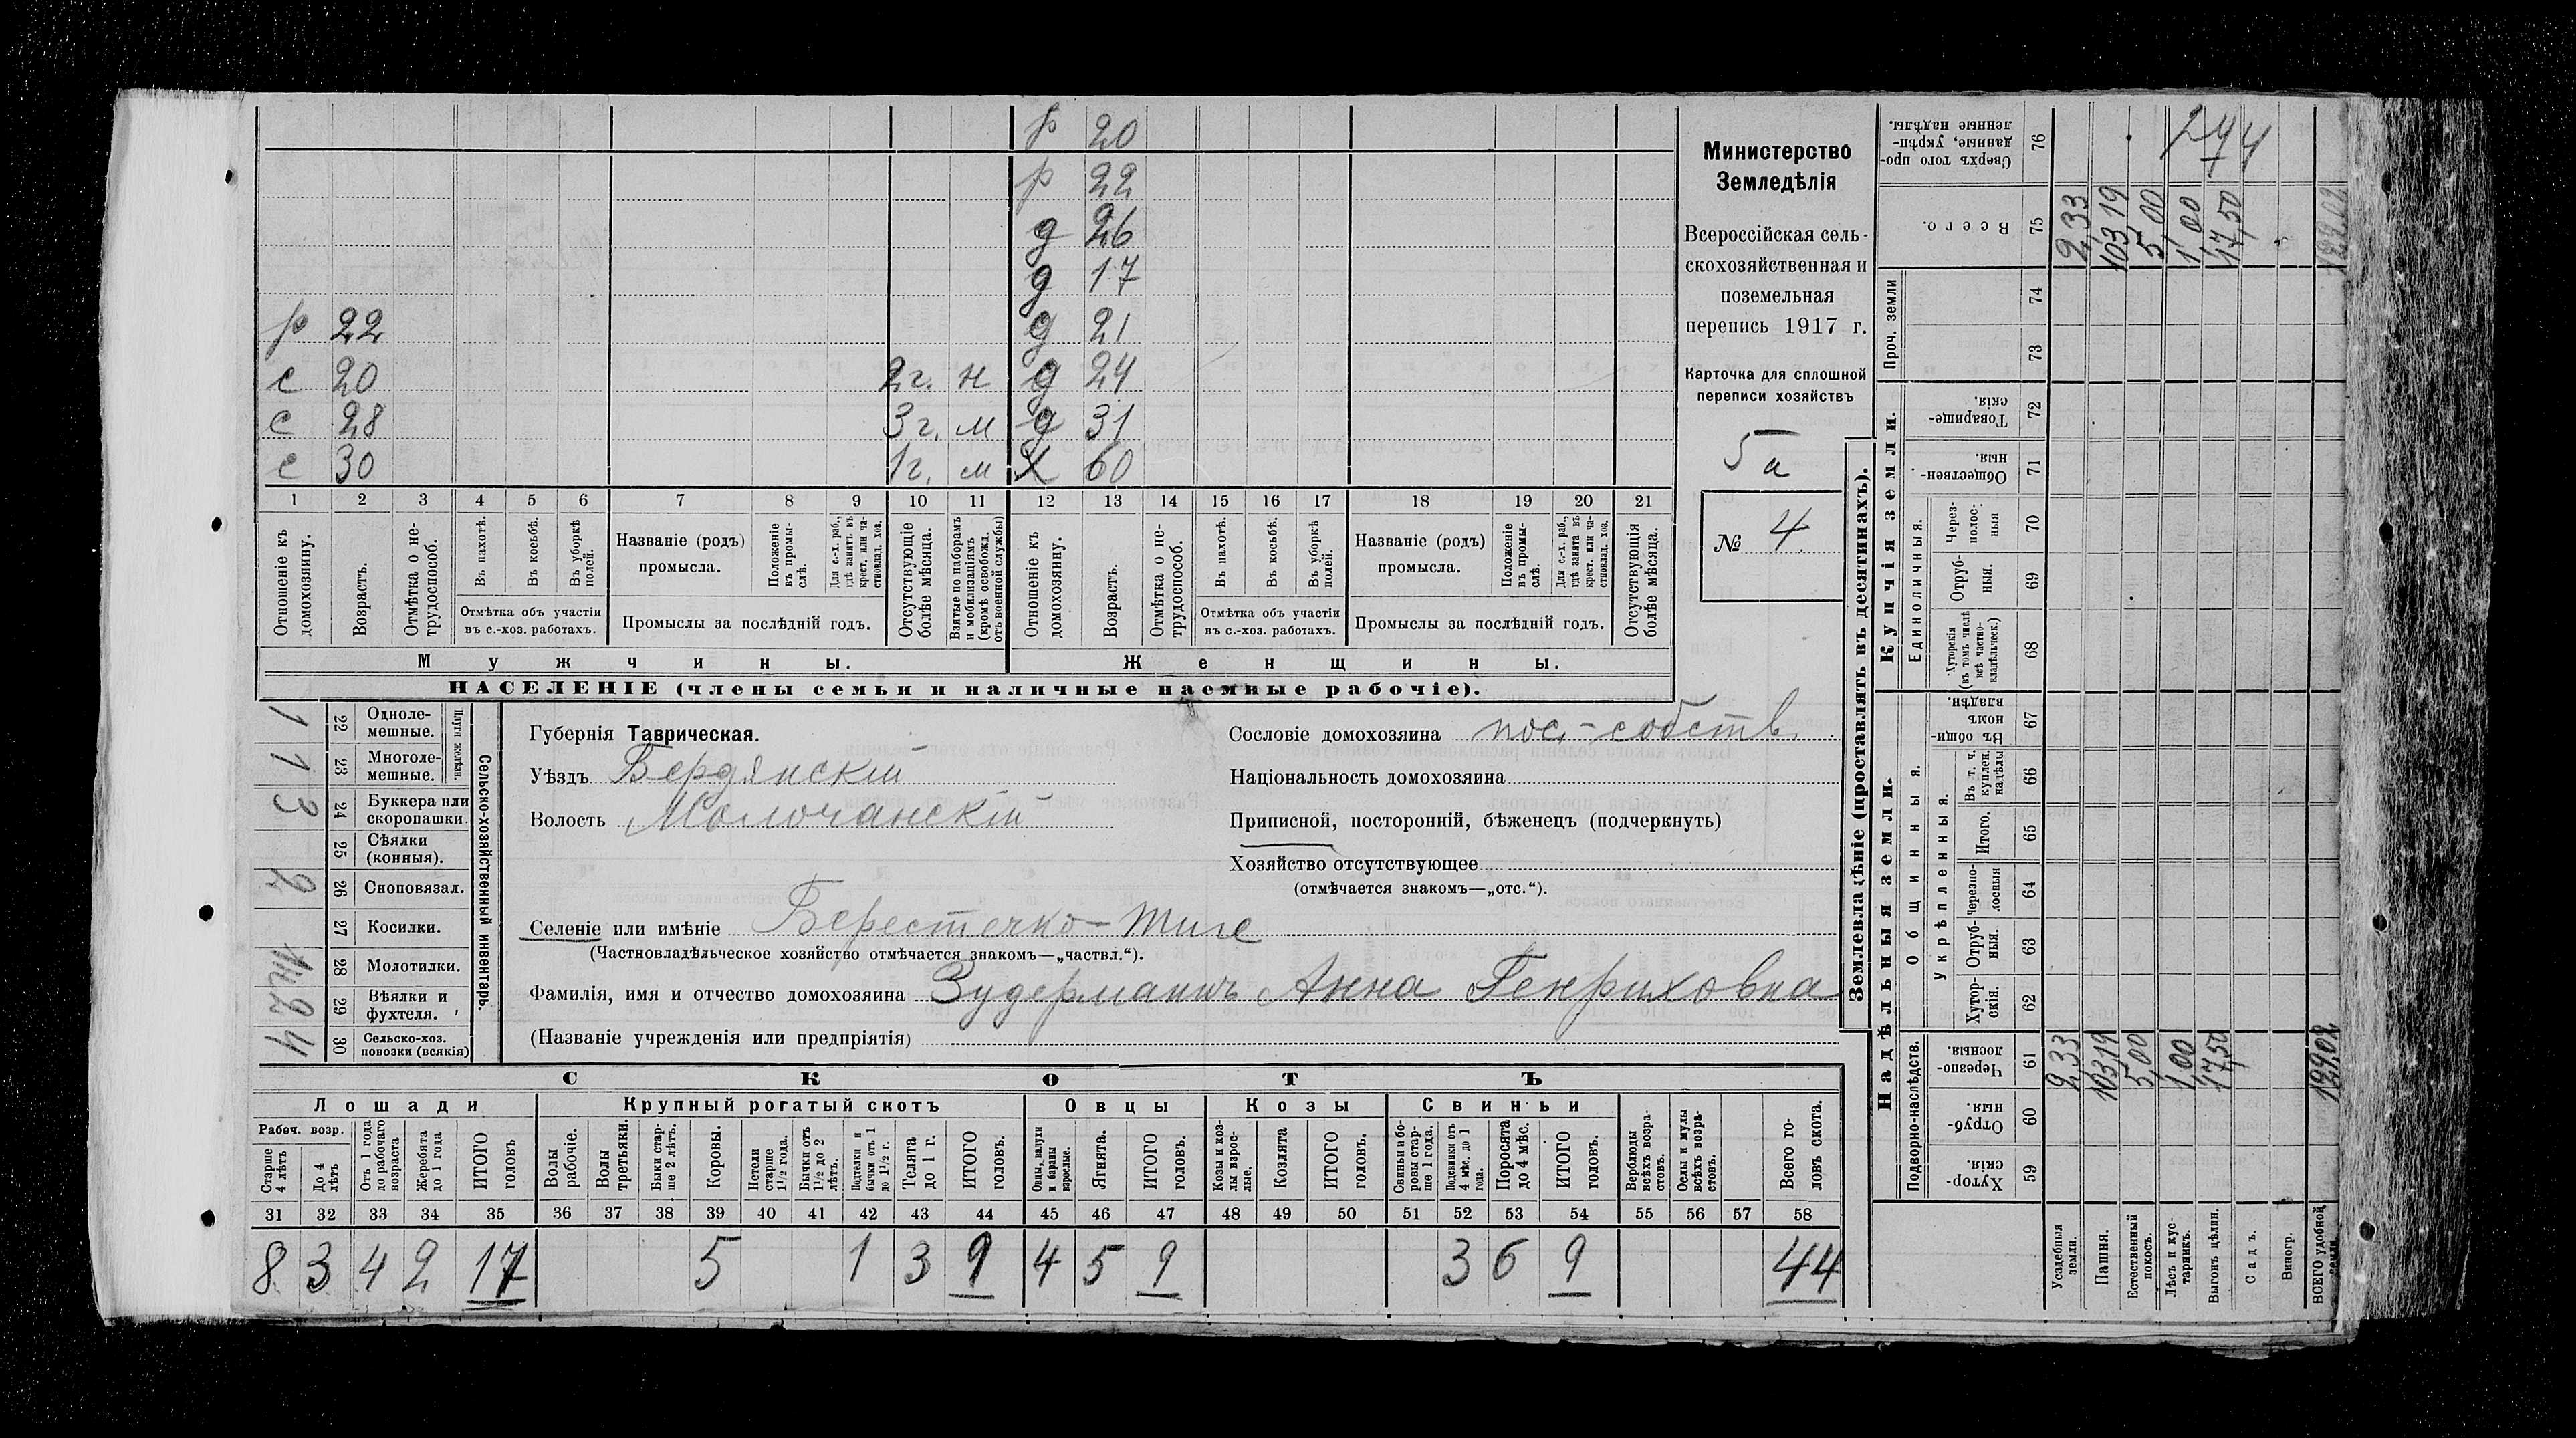 р 20
р 22
д 26
д 17
р 22 д 21
с 20 2 г. н д 24
с 28 3 г. м д 31
с 30 1 г. м х 60
1 2 3 4 5 6 7 8 9 10 11 12 13 14 15 16 17 18 19 20 21
Отношеніе къ домохозяину.
Возрастъ.
Отмѣтка о нетрудоспособ.
Въ пахотѣ.
Въ косьбѣ.
Въ уборкѣ полей.
Отмѣтка объ участіи
въ с.-хоз. работахъ.
Названіе (родъ)
промысла.
Положеніе въ промы-
слѣ.
Для с.-х. раб.,
гдѣ занятъ въ
крест. или ча-
стновлад. хоз.
Промыслы за послѣдній годъ.
Отсутствующіе
болѣе мѣсяца.
Взятые по наборамъ
и мобилизаціямъ
(кромѣ освобожд.
отъ военной службы)
Отношеніе къ
домохозяину.
Возрастъ.
Отмѣтка о не-
трудоспособ.
Въ пахотѣ.
Въ косьбѣ.
Въ уборкѣ
полей.
Отмѣтка объ участіи
въ с.-хоз. работахъ.
Названіе (родъ)
промысла.
Положеніе
въ промы-
слѣ.
Для с.-х. раб.,
гдѣ занята въ
крест. или ча-
стновлад. хоз.
Промыслы за послѣдній годъ.
Отсутствующія
болѣе мѣсяца.
Мужчины.
Женщины.
НАСЕЛЕНІЕ (члены семьи и наличные наемные рабочіе).
Министерство
Земледѣлія
Всероссійская сель-
скохозяйственная и
поземельная
перепись 1917 г.
Карточка для сплошной
переписи хозяйствъ
5а
№ 4
Сельско-хозяйственный инвентарь.
Плуги желѣзн.
22 Одноле-
мешные. 1
23 Многоле-
мешные. 1
24 Буккера или
скоропашки. 3
25 Сѣялки
(конныя).
26 Сноповязал. 2
27 Косилки.
28 Молотилки.
29 Вѣялки и
фухтеля. 2
30 Сельско-хоз.
повозки (всякія) 4
Губернія Таврическая.
Уѣздъ Бердянскій
Волость Молочанскій
Селеніе или имѣніе Берестечко-Тиге
(Частновладѣльческое хозяйство отмѣчается знакомъ—„частвл.“).
Фамилія, имя и отчество домохозяина Зудерманнъ Анна Генриховна
(Названіе учрежденія или предпріятія)
Сословіе домохозяина пос.-собств.
Національность домохозяина
Приписной, посторонній, бѣженецъ (подчеркнуть)
Хозяйство отсутствующее
(отмѣчается знакомъ—„отс.“).
СКОТЪ
Лошади
Крупный рогатый скотъ
Овцы
Козы
Свиньи
Рабоч. возр.
Старше
4 лѣтъ
До 4
лѣтъ
Отъ 1 года
до рабочаго
возраста
Жеребята
до 1 года
ИТОГО
головъ
Волы
рабочіе.
Волы
третьяки.
Быки стар-
ше 2 лѣтъ.
Коровы.
Нетели
старше
1½ года.
Бычки отъ
1½ до 2
лѣтъ.
Подтелки и
бычки отъ 1
до 1½ г.
Телята
до 1 г.
ИТОГО
головъ.
Овцы, валухи
и бараны
взрослые.
Ягнята.
ИТОГО
головъ.
Козы и коз-
лы взрос-
лые.
Козлята
ИТОГО
головъ.
Свиньи и бо-
ровы стар-
ше 1 года.
Подсвинки отъ
4 мѣс. до 1
года.
Поросята
до 4 мѣс.
ИТОГО
головъ.
Верблюды
всѣхъ возра-
стовъ.
Ослы и мулы
всѣхъ возра-
стовъ.
Всего го-
ловъ скота.
31 32 33 34 35 36 37 38 39 40 41 42 43 44 45 46 47 48 49 50 51 52 53 54 55 56 57 58
8 3 4 2 17 5 1 3 9 4 5 9 3 6 9 44
Землевладѣніе (проставлять въ десятинахъ).
Надѣльныя земли.
Купчія земли.
Проч. земли
Подворно-наслѣдств.
Общинныя.
Укрѣпленныя.
Единоличныя.
Сверхъ того про-
данные, укрѣп-
ленные надѣлы. 76
Всего. 75
74
73
Товарище-
скія. 72
Обществен-
ныя. 71
Через-
полос-
ныя 70
Отруб-
ныя. 69
Хуторскія
(въ томъ числѣ
всѣ частно-
владѣльческ.) 68
Въ общин-
номъ
владѣн. 67
Въ т. ч.
куплен.
надѣлы 66
Итого. 65
Черезпо-
лосныя 64
Отруб-
ныя. 63
Хутор-
скія. 62
Черезпо-
лосныя. 61
Отруб-
ныя. 60
Хутор-
скія. 59
Усадебныя
земли. 2,33 2,33
Пашня. 103,19 103,19
Естественный
покосъ. 5,00 5,00
Лѣсъ и кус-
тарникъ. 1,00 1,00
Выгонъ цѣлин. 17,50 17,50
Садъ.
Виногр.
ВСЕГО удобной
земли. 129,02 129,02